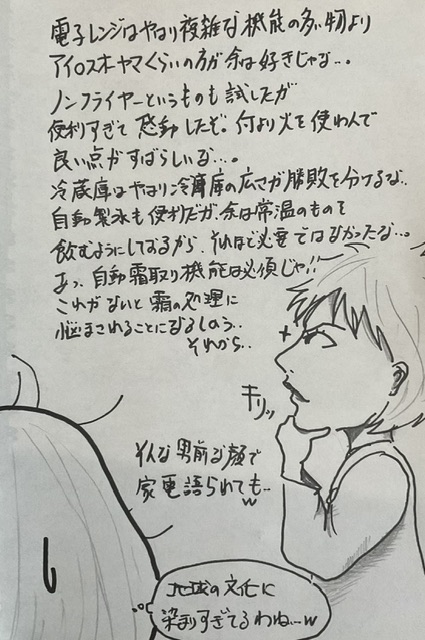 電子レンジはやはり複雑な機能の多い物より
アイロスオーヤマくらいの方が余は好きじゃな…
ノンフライヤーというものも試したが
便利すぎて感動したぞ。何より火を使わんで
良い点がすばらしいな…。
冷蔵庫はやはり冷凍庫の広さが勝敗を分けるな…
自動製氷も便利だが、余は常温のものを
飲むようにしておるから、それほど必要ではなかったな…。
あっ、自動霜取り機能は必須じゃ!!
これがないと霜の処理に
悩まされることになるしのう…
それから…
キリッ
そんな男前な顔で
家電語られても…w
地球の文化に
染まりすぎてるわね…w